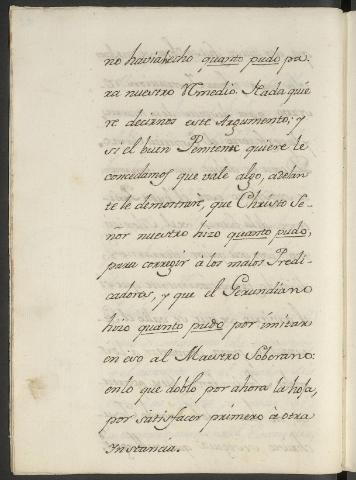 no havia hecho quanto pudo pa-
ra nuestro Rmedio. Nada quie
re decirnos este Argumento; y
si el buen Penitente quiere le
concedamos que vale algo, adelan
te le demostraré, que Christo Se-
ñor nuestro hizo quanto pudo,
para corregir à los malos Predi-
cadores, y que el Gerundiano
hizo quanto pudo por imitar
en eso al Maestro Soberano:
con lo que doblo por ahora la hoja,
por satisfacer primero à otra
instancia.